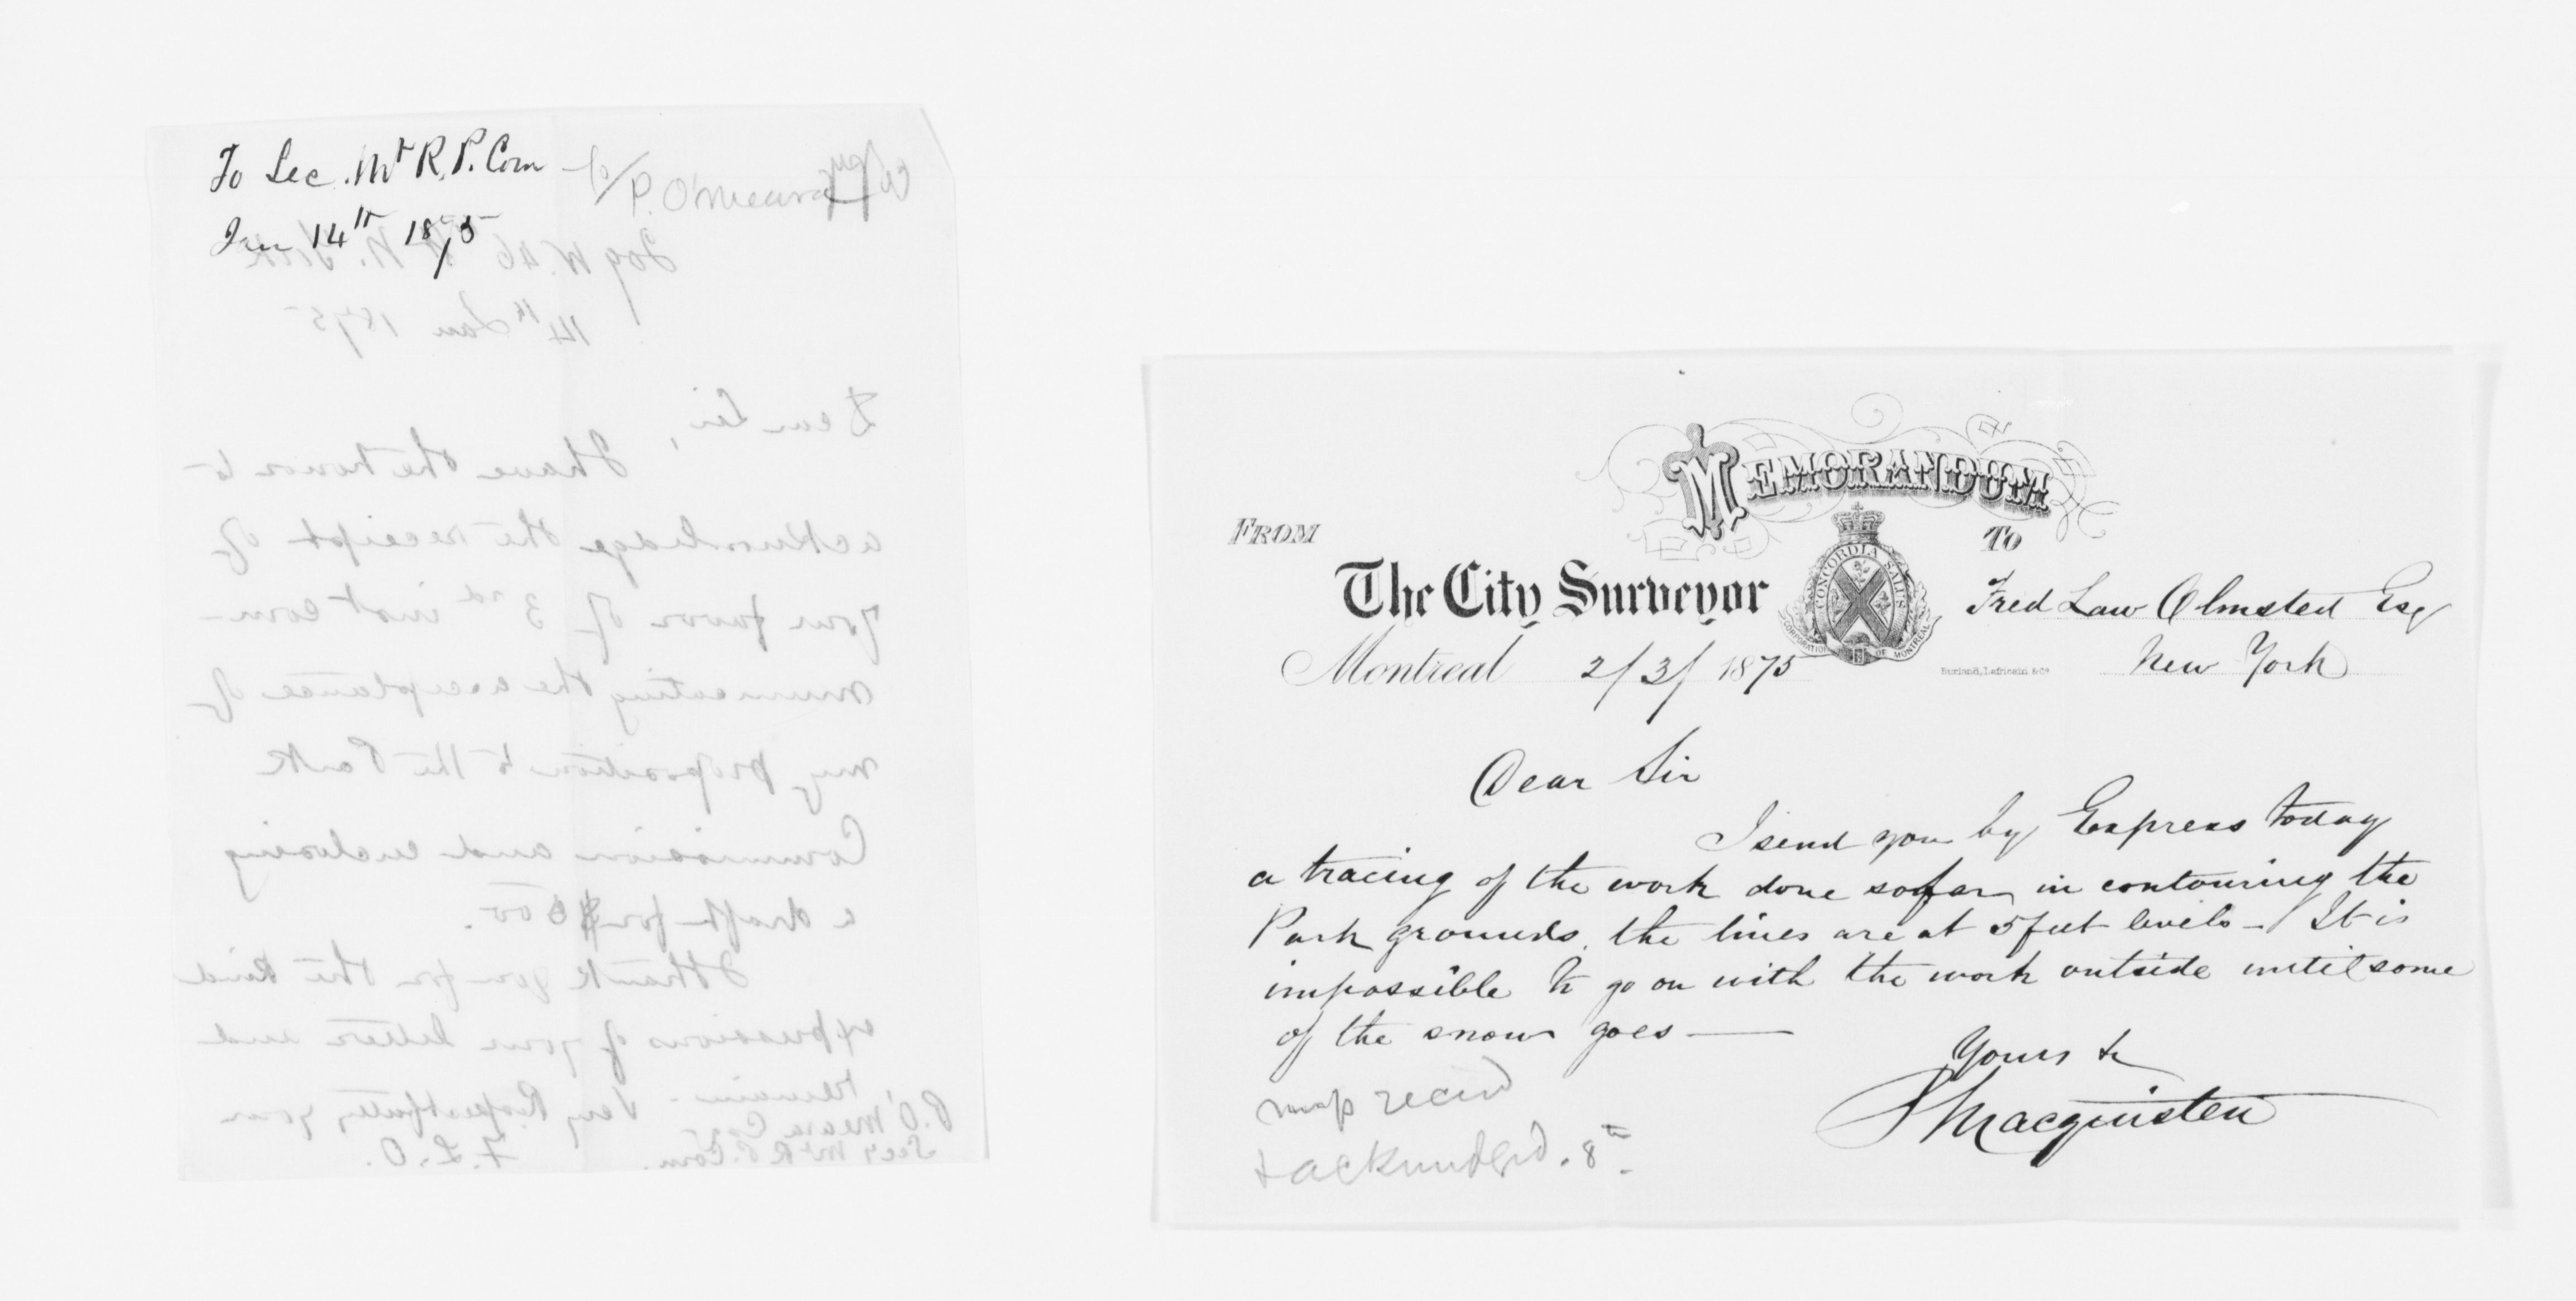 To Sec. Mt R. P. Com
Jan 14th 1875
to/P. O'Meara
Copy
209 W. 46 N. York
14th Jan 1875
Dear Sir,
I have the honor to
acknowledge the receipt of
your favor of 3rd inst com-
municating the acceptance of
my proposition to the Park
Commission and enclosing
a draft for $500.
I thank you for the kind
expressions of your letter and
remain - Very Respectfully your
P. O'Meara Esqr F. L. O.
Secy Mt R. P. Com.
MEMORANDUM
FROM
TO
The City Surveyor
CONCORDIA SALUS
CORPORATION OF MONTREAL
Fred Law Olmsted Esq
Montreal 2/3/1875
Burland, Lafricain & Co
New York
Dear Sir
I send you by Express today
a tracing of the work done so far in contouring the
Park grounds, the lines are at 5 feet levels - It is
impossible to go on with the work outside until some
of the snow goes —
Yours &c
P Macquisten
map recd
& acknowldgd. 8th